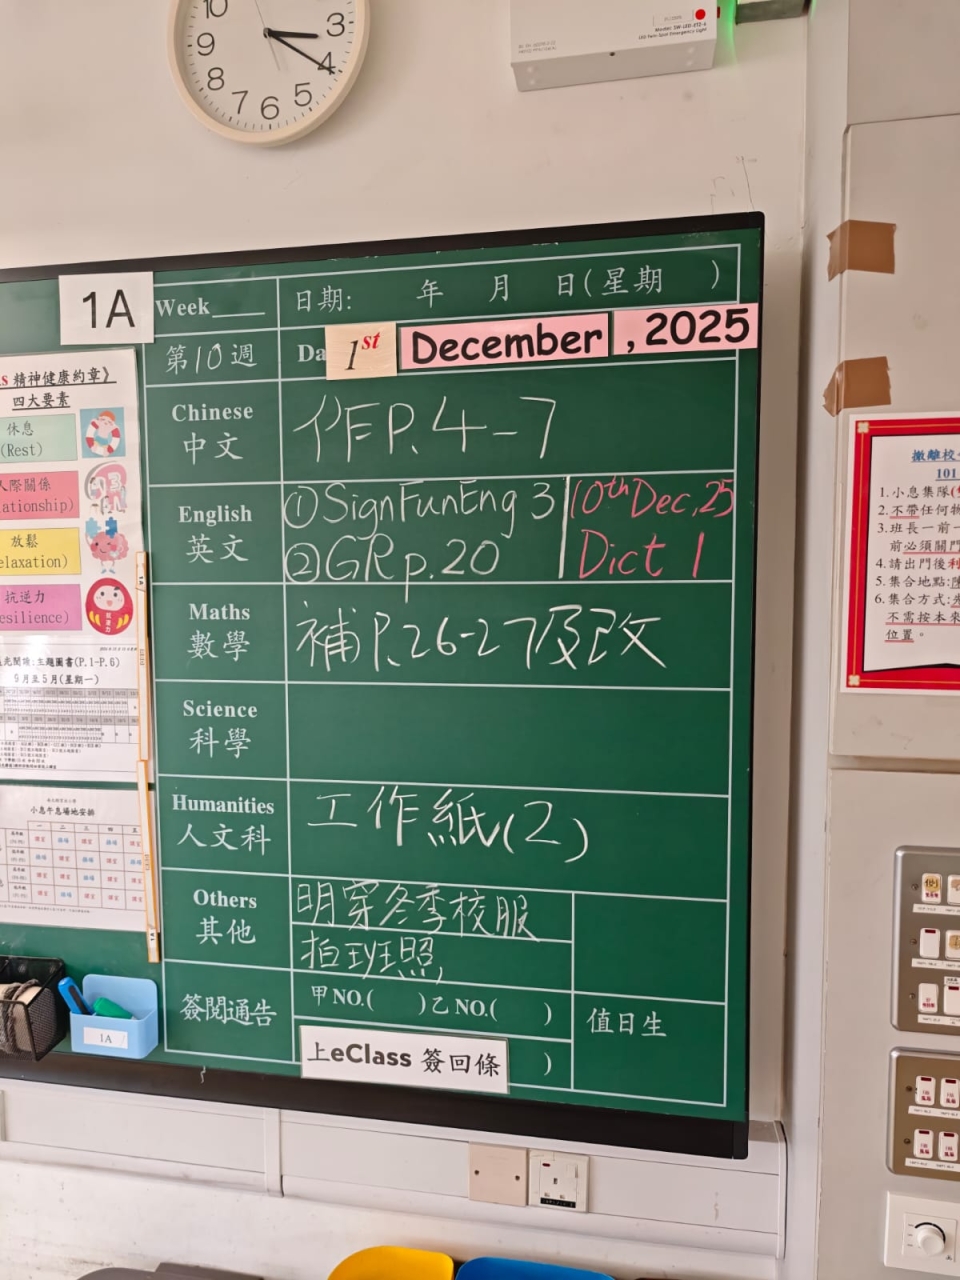 10
3
9
4
8
7
6
5
1A
Week____
日期: 年 月 日(星期 )
第10週
Da
1st
December
, 2025
Chinese
中文
作P.4-7
English
英文
①SignFunEng 3
②GRp.20
10th Dec,25
Dict 1
Maths
數學
補P.26-27及改
Science
科學
Humanities
人文科
工作紙(2)
Others
其他
明穿冬季校服
拍班照,
簽閱通告
甲NO.( )乙NO.( )
值日生
上eClass 簽回條
)
精神健康約章》
四大要素
休息
(Rest)
人際關係
放鬆
抗逆力
主題圖書(P.1-P.6)
9月至5月(星期一)
小息午息場地安排
1A
撤離校
101
1. 小息集隊
2. 不帶任何物
3. 班長一前一
前必須關門
4. 請出門後
5. 集合地點:
6. 集合方式:
不需按本來
位置。